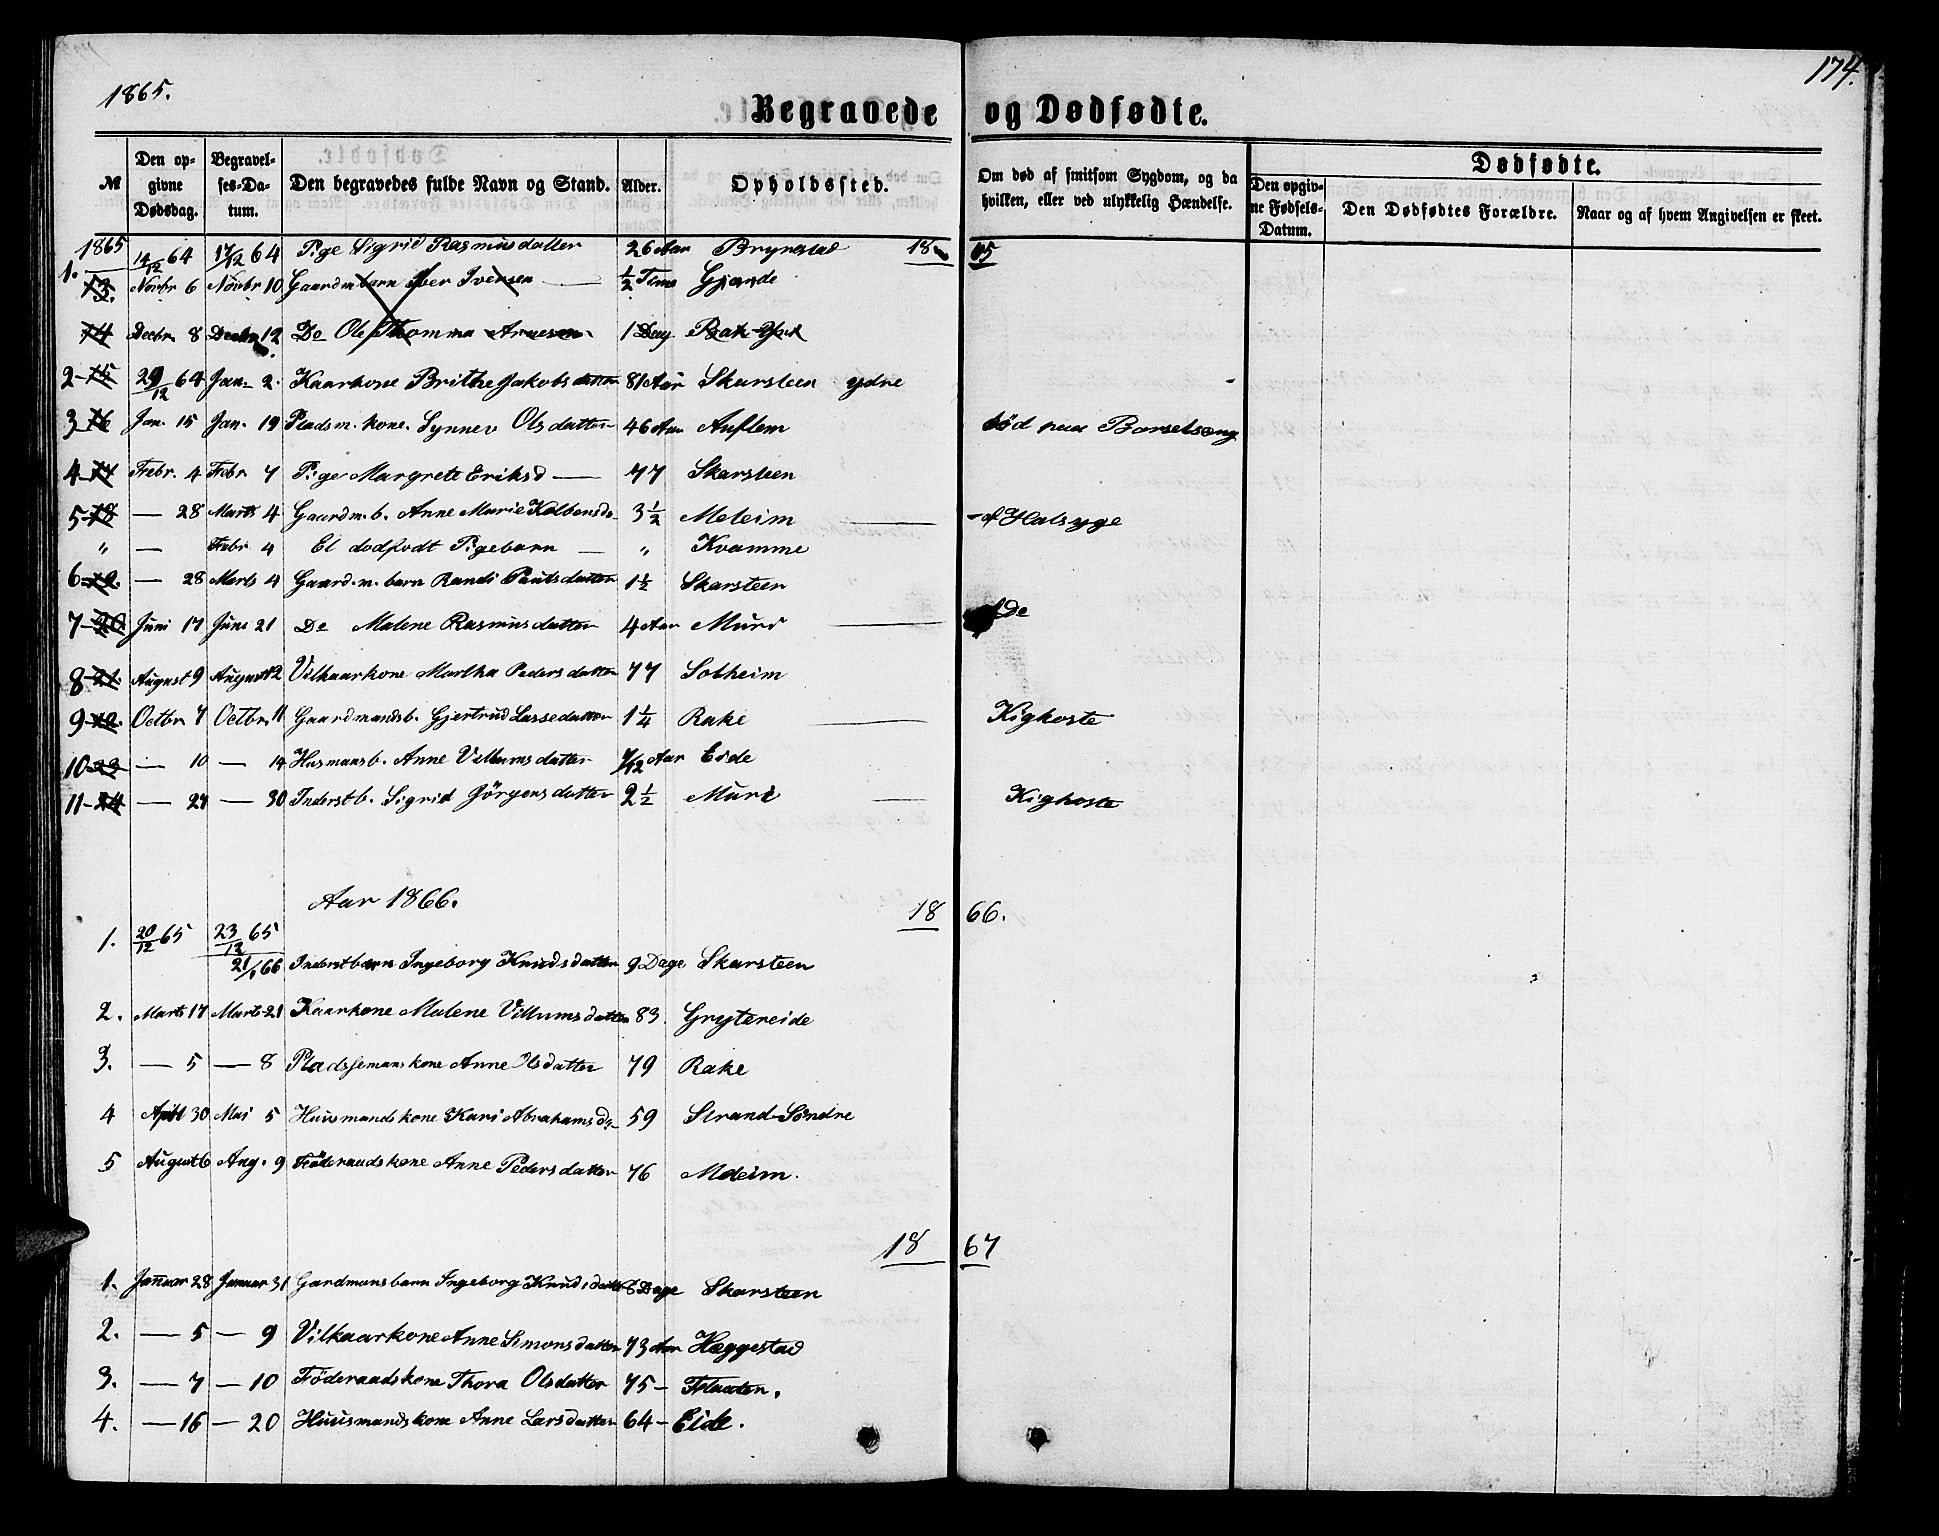 1865.
174.
Begravede og Dødfødte.
№ Den opgivne Dødsdag. Begravelses-Datum. Den begravedes fulde Navn og Stand. Alder. Opholdssted. Om død af smitsom Sygdom, og da hvilken, eller ved ulykkelig Hændelse. Dødfødte. Den opgivne Fødsels-Datum. Den Dødfødtes Forældre. Naar og af hvem Angivelsen er skeet.
1865 18 65
1. 14/12 64 17/12 64 Pige Sigrid Rasmusdatter 26 Aar Brynestad
13. Novbr 6 Novbr 10 Gaardm barn Iver Iversen — 1/2 Time Gjerde
14 Decbr. 8 Decbr 12 Do Ole Thomma Arnesen 1 Dag
2 15 29/12 64 Jan. 2. Kaarkone Brithe Jakobsdatter 81 Aar Skarsteen ydre
3 16 Jan. 15 Jan. 19 Pladsm. kone. Synnev Olsdatter 46 Aar Auflem død paa Barselseng
4 17 Febr. 4 Febr 7 Pige Margrete Eriksd — 77 Skarsteen
5 18 — 28 Marts 4 Gaardm. b. Anne Marie Kolbensd. 3 1/2 Meleim — af Halsyge
" — Febr 4 Et dødfødt Pigebarn — " Kvamme
6 19. — 28 Marts 4 Gaard. m. barn Randi Paulsdatter 1 1/2 Skarsteen
7 20 Juni 17 Juni 21 Do Malene Rasmusdatter 4 Aar Muri — Do
8 21. August 9 August 12 Vilkaarkone Martha Pedersdatter 77 Solheim
9 Octbr. 7 Octbr. 11 Gaardmandsb. Gjertrud Lassedatter 1 1/4 Rake — Kighoste
10 23 — 10 — 14 Husmansb. Anne Villumsdatter /12 Aar Eide
11 24 — 27 — 30 Inderstb. Sigrid Jörgensdatter 2 1/2 Muri — Kighoste
Aar 1866. 18 66.
1. 20/12 65 23/12 65
21/1 66 Inderstbarn Ingeborg Knudsdatter 9 Dage Skarsteen
2. Marts 17 Marts 21 Kaarkone Malene Villumsdatter 83. Grytereide
3. — 5 — 8 Pladssemans kone Anne Olsdatter 79 Rake
4 April 30 Mai 5 Huusmandskone Kari Abrahamsd. 59 Strand Söndre
5 August 6 Aug. 9 Föderaadskone Anne Pedersdatter 76 Meleim.
18 67
1. Januar 28 Januar 31 Gardmansbarn Ingeborg Knudsdatter 8 Dage Skarsteen
2. — 5 — 9 Vilkaarkone Anne Simonsdatter 73 Aar Hæggestad
3. — 7 — 10 Föderaadskone Thora Olsdatter 75 — Flaaten.
4. — 16 — 20 Huusmandskone Anne Larsdatter 64 — Eide.